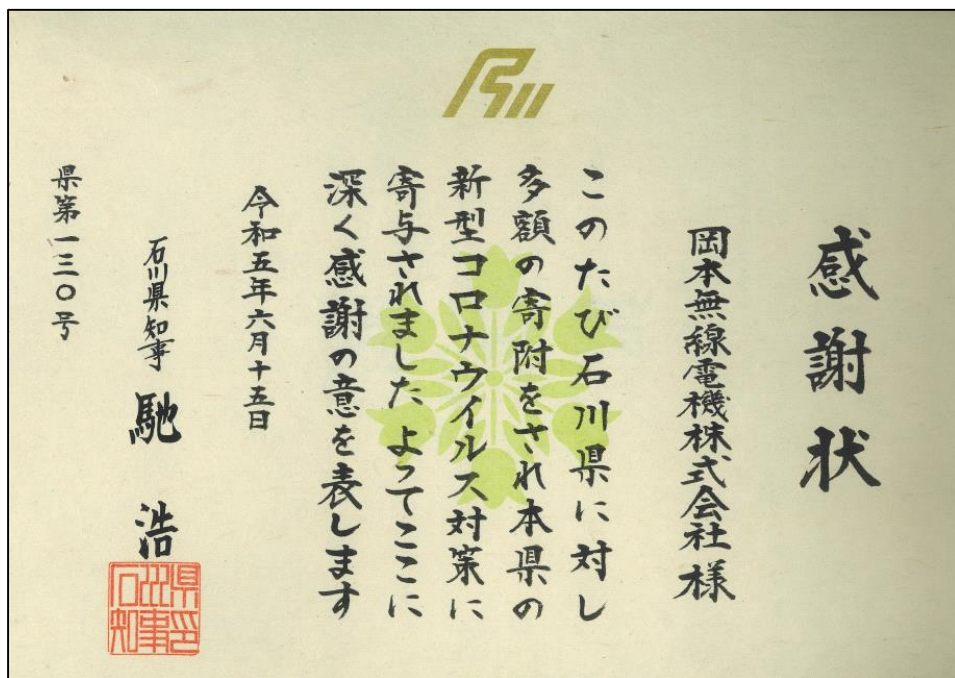 感謝状
岡本無線電機株式会社様
このたび石川県に対し
多額の寄附をされ本県の
新型コロナウイルス対策に
寄与されました よってここに
深く感謝の意を表します
令和五年六月十五日
石川県知事 馳 浩
石川県知事印
県第一三〇号